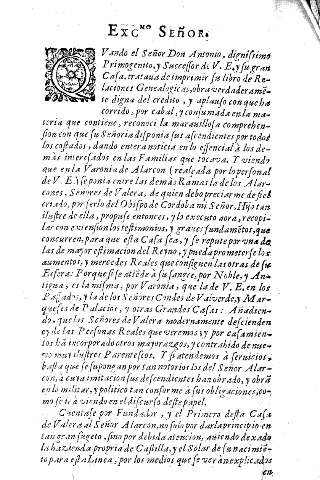 EXC.ᴹᴼ SEÑOR.
QVando el Señor Don Antonio, dignissimo
Primogenito, y Successor de V. E. y su gran
Casa, trataua de imprimir su libro de Re-
laciones Genealogicas, obra verdaderamẽ-
te digna del credito, y aplauso con que ha
corrido, por cabal, y consumada en la ma-
teria que contiene, reconoci la marauillosa comprehen-
sion con que su Señoria disponia sus ascendientes por todos
los costados, dando entera noticia en lo essencial à los de-
màs interesados en las Familias que tocava. Y viendo
que en la Varonia de Alarcon (realçada por lo personal
de V. E.) se ponia entre las demàs Ramas la de los Alar-
cones, Señores de Valera, de quien debo preciarme de fiel
criado, por serlo del Obispo de Cordoba mi Señor, Hijo tan
ilustre de ella, propuse entonces, y lo executo aora, recopi-
lar con exiension los testimonios, y graues fundamẽtos, que
concurren, para que esta Casa sea, y se repute por vna de
las de mayor estimacion del Reyno, y pueda prometerse los
aumentos, y mercedes Reales que consiguen las otras de su
Esfera: Porque si se atiẽde à su sangre, por Noble, y An-
tigua, es la misma, por Varonia, que la de V. E. en los
Passados, y la de los Señores Condes de Valverde, y Mar-
queses de Palacios, y otras Grandes Casas: Añadien-
do, que los Señores de Valera modernamente descienden
de las Personas Reales que veremos, y por casamien-
tos hã incorporado otros mayorazgos, y contrahido de nue-
vo muy ilustres Parentescos. Y si atendemos à servicios,
basta que se supongan por tan notorios los del Señor Alar-
con, à cuya imitacion sus descendientes han obrado, y obrã
en lo militar, y politico tan conforme à sus obligaciones, co-
mo se irà viendo en el discurso deste papel.
Cuentase por Fundador, y el Primero desta Casa
de Valera al Señor Alarcon, no solo por darla principio en
tan gran sugeto, sino por debida atencion, auiendo dexado
la hazienda propria de Castilla, y el Solar de su nacimiẽ-
to para esta Linea, por los medios que se veràn explicados